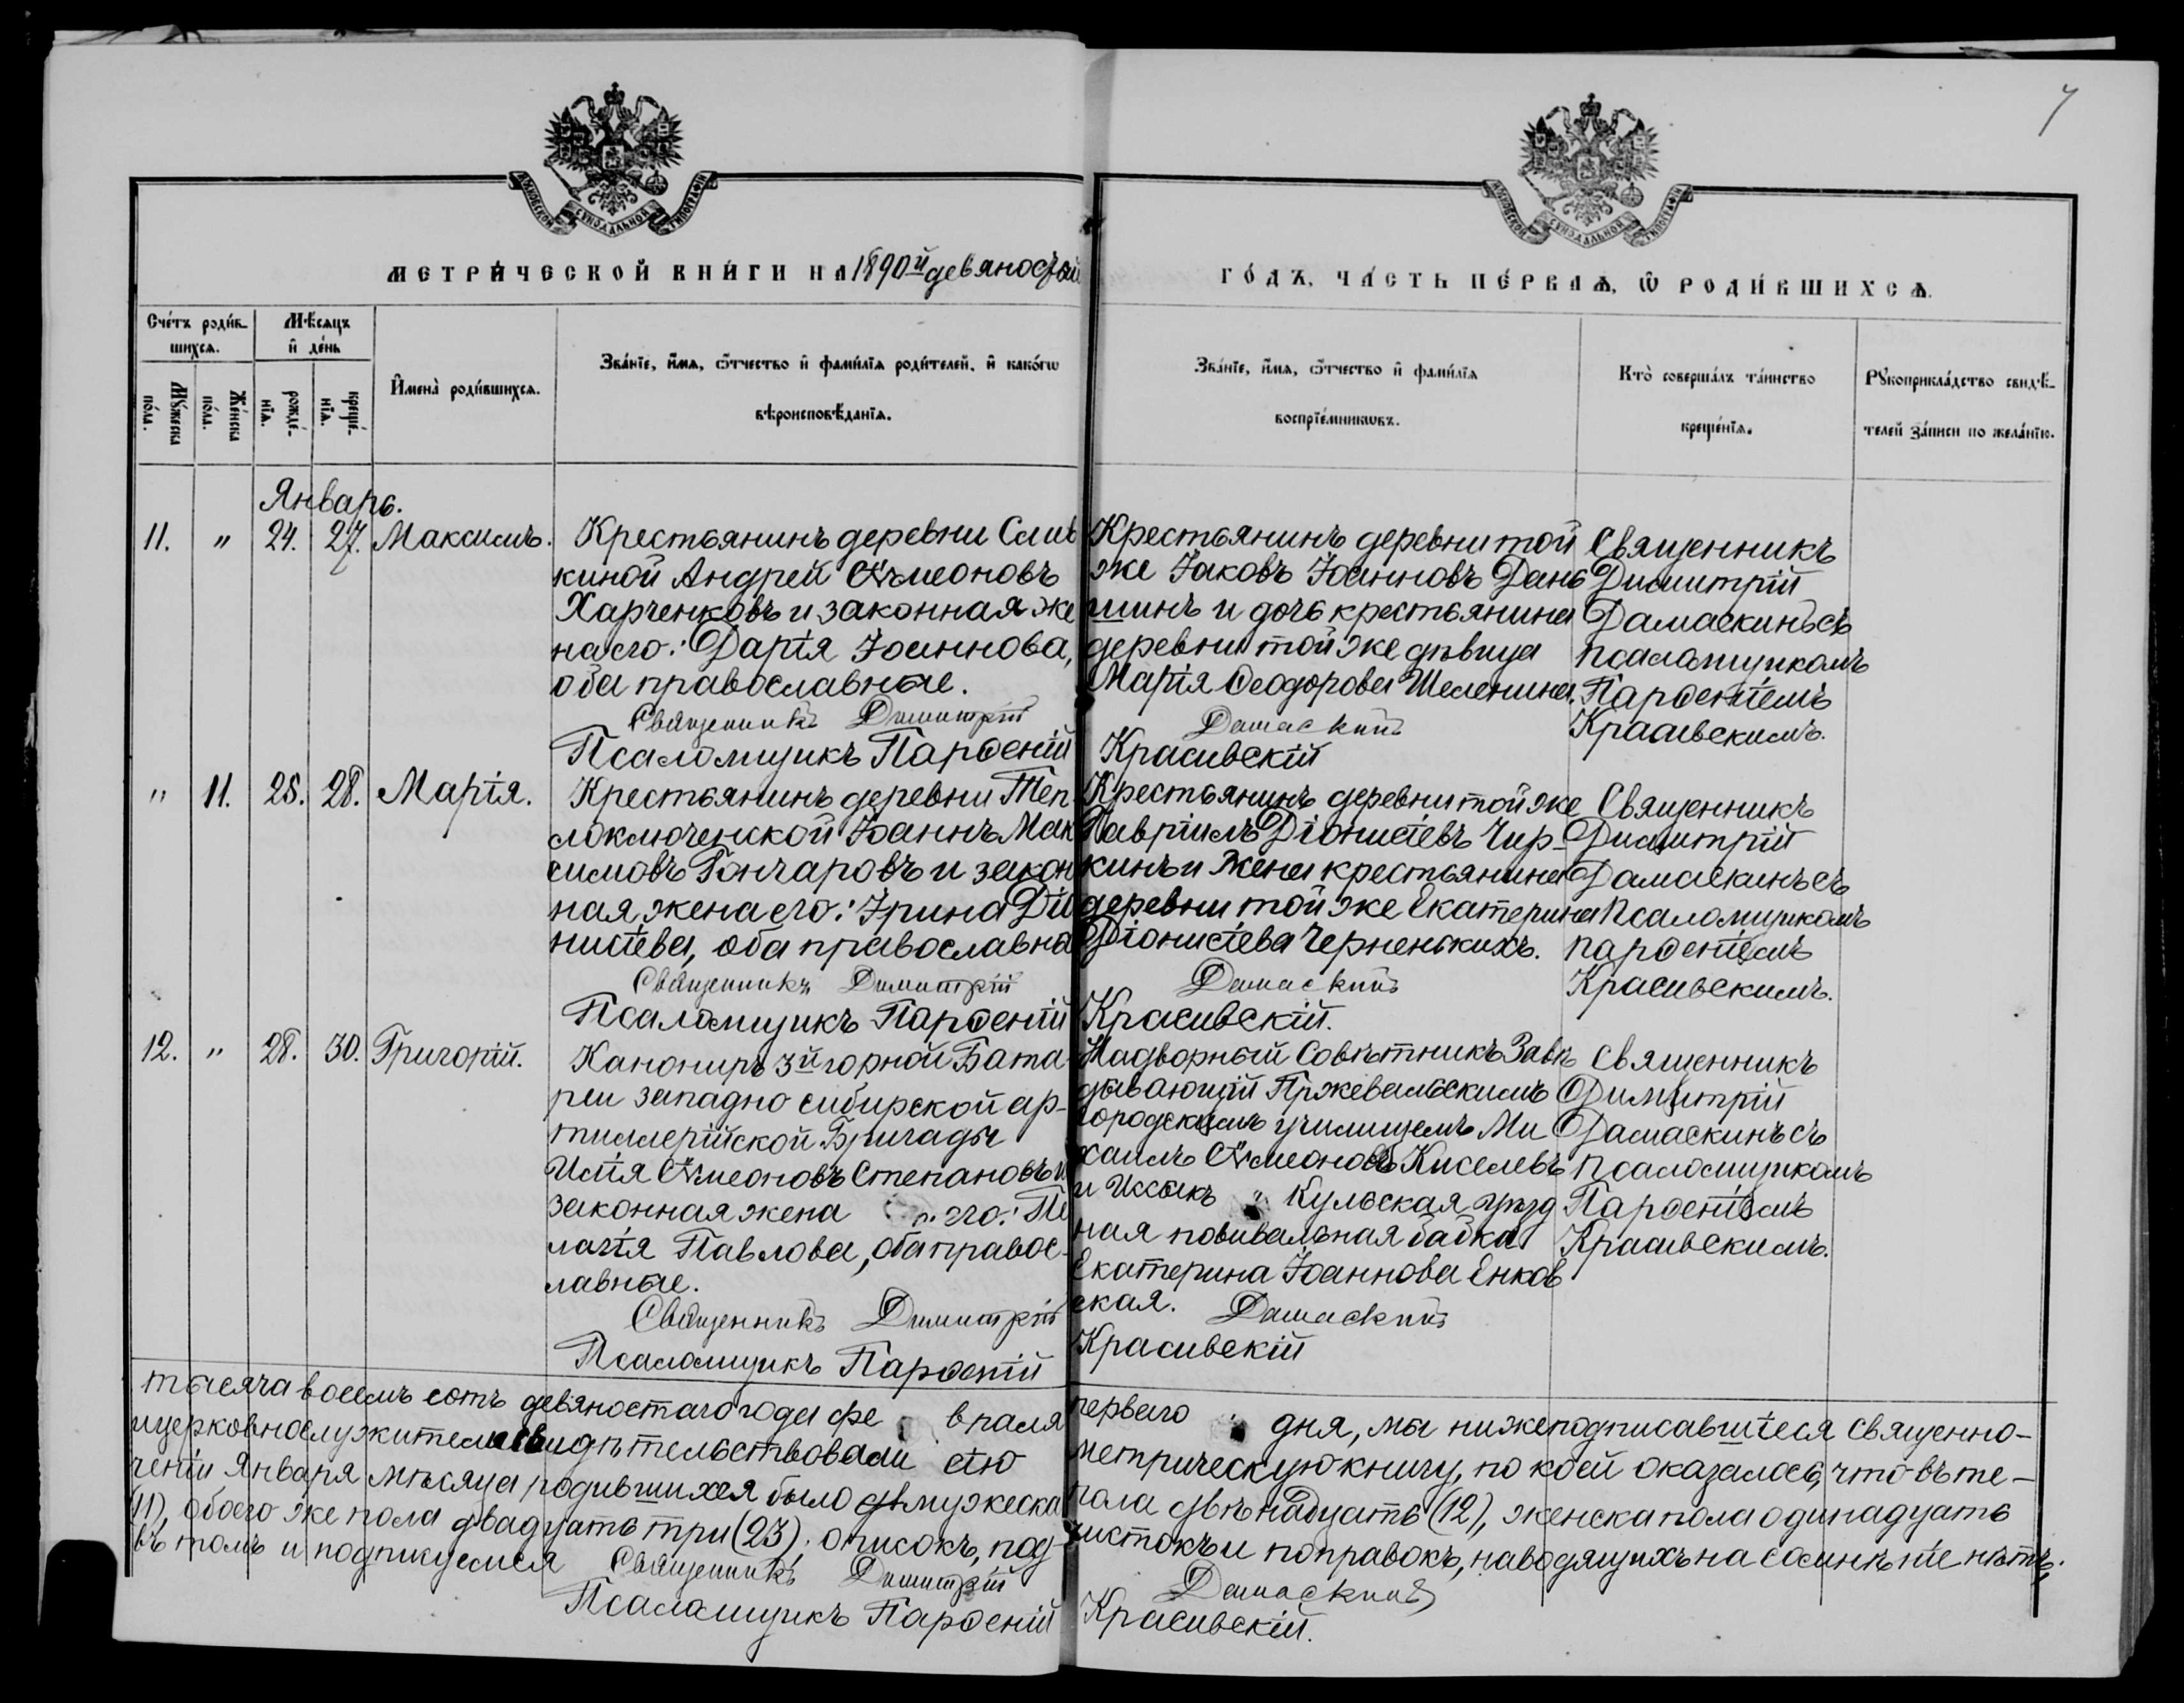 7
МОСКОВСКОЙ СѴНОДАЛЬНОЙ ТИПОГРАФІИ
МОСКОВСКОЙ СѴНОДАЛЬНОЙ ТИПОГРАФІИ
МЕТРИ́ЧЕСКОЙ КНИ́ГИ НА 1890й девяностый
ГО́ДЪ, ЧА́СТЬ ПЕ́РВАѦ, Ѡ РОДИ́ВШИХСѦ.
Сче́тъ роди́в-
шихсѧ.
Мѣ́сѧцъ
и҆ де́нь
Мꙋ́жеска
по́ла.
Же́нска
по́ла.
рожде́-
нїѧ.
креще́-
нїѧ.
И҆мена̀ роди́вшихсѧ.
Зва́нїе, и҆́мѧ, ѻ҆́тчество и҆ фами́лїѧ роди́телей, и҆ како́гѡ
вѣроисповѣ́данїѧ.
Зва́нїе, и҆́мѧ, ѻ҆́тчество и҆ фами́лїѧ
воспрїе́мникѡвъ.
Кто̀ соверша́лъ та́инство
креще́нїѧ.
Рꙋкоприкла́дство свидѣ́-
телей за́писи по жела́нїю.
Январь.
11. " 24. 27. Максимъ.
Крестьянинъ деревни Слив
киной Андрей Сѵмеоновъ
Харченковъ и законная же
на его: Дарія Іоаннова,
оба православные.
Священникъ Димитрій
Псаломщикъ Парѳеній
Крестьянинъ деревни той
же Іаковъ Іоанновъ Дань
шинъ и дочь крестьянина
деревни той же дѣвица
Марія Ѳеодорова Шеленина.
Дамаскинъ
Красивскій
Священникъ
Димитрій
Дамаскинъ съ
псаломщикомъ
Парѳеніемъ
Красивскимъ.
" 11. 25. 28. Марія.
Крестьянинъ деревни Теп
лоключенской Іоаннъ Мак
симовъ Гончаровъ и закон
ная жена его: Ирина Діо
нисіева, оба православны
Священникъ Димитрій
Псаломщикъ Парѳеній
Крестьянинъ деревни той же
Гавріилъ Діонисіевъ Чир-
кинъ и жена крестьянина
деревни той же Екатерина
Діонисіева Черненькихъ.
Дамаскинъ
Красивскій.
Священникъ
Димитрій
Дамаскинъ съ
Псаломщикомъ
парѳеніемъ
Красивскимъ.
12. " 28. 30. Григорій.
Канониръ 3й горной Бата
реи западно сибирской ар-
тиллерійской Бригады
Илія Сѵмеоновъ Степановъ и
законная жена его: Пе
лагія Павлова, оба правос-
лавные.
Священникъ Димитрій
Псаломщикъ Парѳеній
Надворный Совѣтникъ Завѣ
дывающій Пржевальскимъ
городскимъ училищемъ Ми
хаилъ Сѵмеоновъ Киселевъ
и Иссыкъ Кульская уѣзд
ная повивальная бабка
Екатерина Іоаннова Енков
ская. Дамаскинъ
Красивскій
Священникъ
Димитрій
Дамаскинъ съ
псаломщикомъ
Парѳеніемъ
Красивскимъ.
тысяча восемь сотъ девяностаго года фе враля перваго дня, мы нижеподписавшіеся священно-
ицерковнослужители свидѣтельствовали сію метрическую книгу, по коей оказалось, что въ те-
ченіи Января мѣсяца родившихся было мужеска пола двѣнадцать (12), женска пола одинадцать
(11), обоего же пола двадцать три (23); описокъ, под чистокъ и поправокъ, наводящихъ на сомнѣніе нѣтъ,
въ томъ и подпишемся Священникъ Димитрій Дамаскинъ
Псаломщикъ Парѳеній Красивскій.